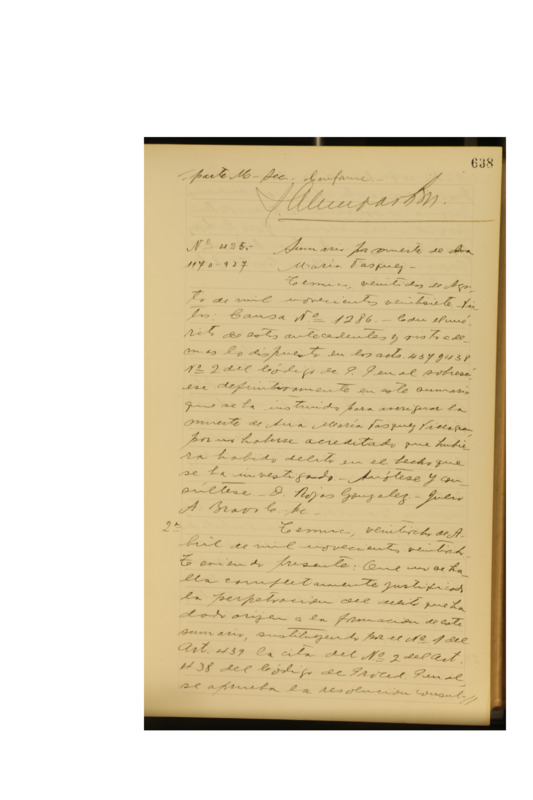 638
parte M- Sec. Conforme
Nº 435- Sumario por muerte de Ana
1170-927 María Vasquez -
Temuco, veintidos de Agos-
to de mil novecientos veintisiete. Vis-
tos: Causa Nº 1286. - Con el mé-
rito de estos antecedentes y visto ade-
mas lo dispuesto en los arts. 437 y 438
Nº 2 del Código de P. Penal sobresé-
ese definitivamente en este sumario
que se ha instruido para averiguar la
muerte de Ana María Vasquez
por no haberse acreditado que hubie-
ra habido delito en el hecho que
se ha investigado. - Anótese y con-
súltese. - D. Rojas Gonzalez -
A Bravo C.
2ª Temuco, veintiocho de A-
bril de mil novecientos veintiocho.
Teniendo presente: Que no se ha-
lla completamente justificada
la perpetracion del delito que ha
dado origen a la formacion de este
sumario, sustituyendo por el Nº 1 del
Art. 439 la cita del Nº 2 del Art.
438 del Código de Proced Penal,
se aprueba la resolucion consul-//